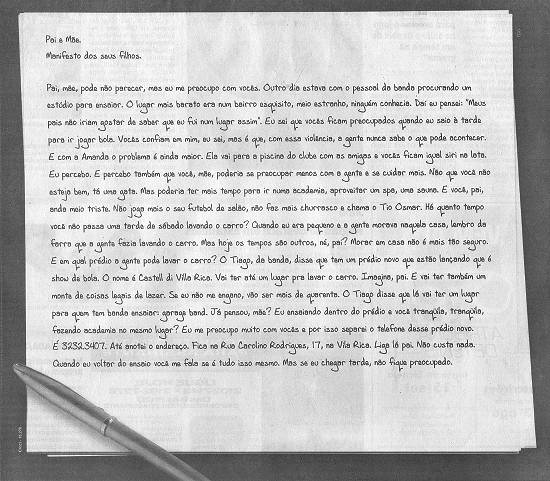 Pai e Mãe.
Manifesto dos seus filhos.
Pai, mãe, pode não parecer, mas eu me preocupo com vocês. Outro dia estava com o pessoal da banda procurando um
estúdio para ensaiar. O lugar mais barato era num bairro esquisito, meio estranho, ninguém conhecia. Daí eu pensei: "Meus
pais não iriam gostar de saber que eu fui num lugar assim". Eu sei que vocês ficam preocupados quando eu saio à tarde
para ir jogar bola. Vocês confiam em mim, eu sei, mas é que, com essa violência, a gente nunca sabe o que pode acontecer.
E com a Amanda o problema é ainda maior. Ela vai para a piscina do clube com as amigas e vocês ficam igual siri na lata.
Eu percebo. E percebo também que você, mãe, poderia se preocupar menos com a gente e se cuidar mais. Não que você não
esteja bem, tá uma gata. Mas poderia ter mais tempo para ir numa academia, aproveitar um spa, uma sauna. E você, pai,
anda meio triste. Não joga mais o seu futebol de salão, não faz mais churrasco e chama o Tio Osmar. Há quanto tempo
você não passa uma tarde de sábado lavando o carro? Quando eu era pequeno e a gente morava naquela casa, lembro da
farra que a gente fazia lavando o carro. Mas hoje os tempos são outros, né, pai? Morar em casa não é mais tão seguro.
E em qual prédio a gente pode lavar o carro? O Tiago, da banda, disse que tem um prédio novo que estão lançando que é
show de bola. O nome é Castell di Villa Rica. Vai ter até um lugar pra lavar o carro. Imagina, pai. E vai ter também um
monte de coisas legais de lazer. Se eu não me engano, vão ser mais de quarenta. O Tiago disse que lá vai ter um lugar
para quem tem banda ensaiar: garage band. Já pensou, mãe? Eu ensaiando dentro do prédio e você tranqüila, tranqüila,
fazendo academia no mesmo lugar? Eu me preocupo muito com vocês e por isso separei o telefone desse prédio novo.
É 32323407. Até anotei o endereço. Fica na Rua Carolino Rodrigues, 17, na Vila Rica. Liga lá pai. Não custa nada.
Quando eu voltar do ensaio você me fala se é tudo isso mesmo. Mas se eu chegar tarde, não fique preocupado.